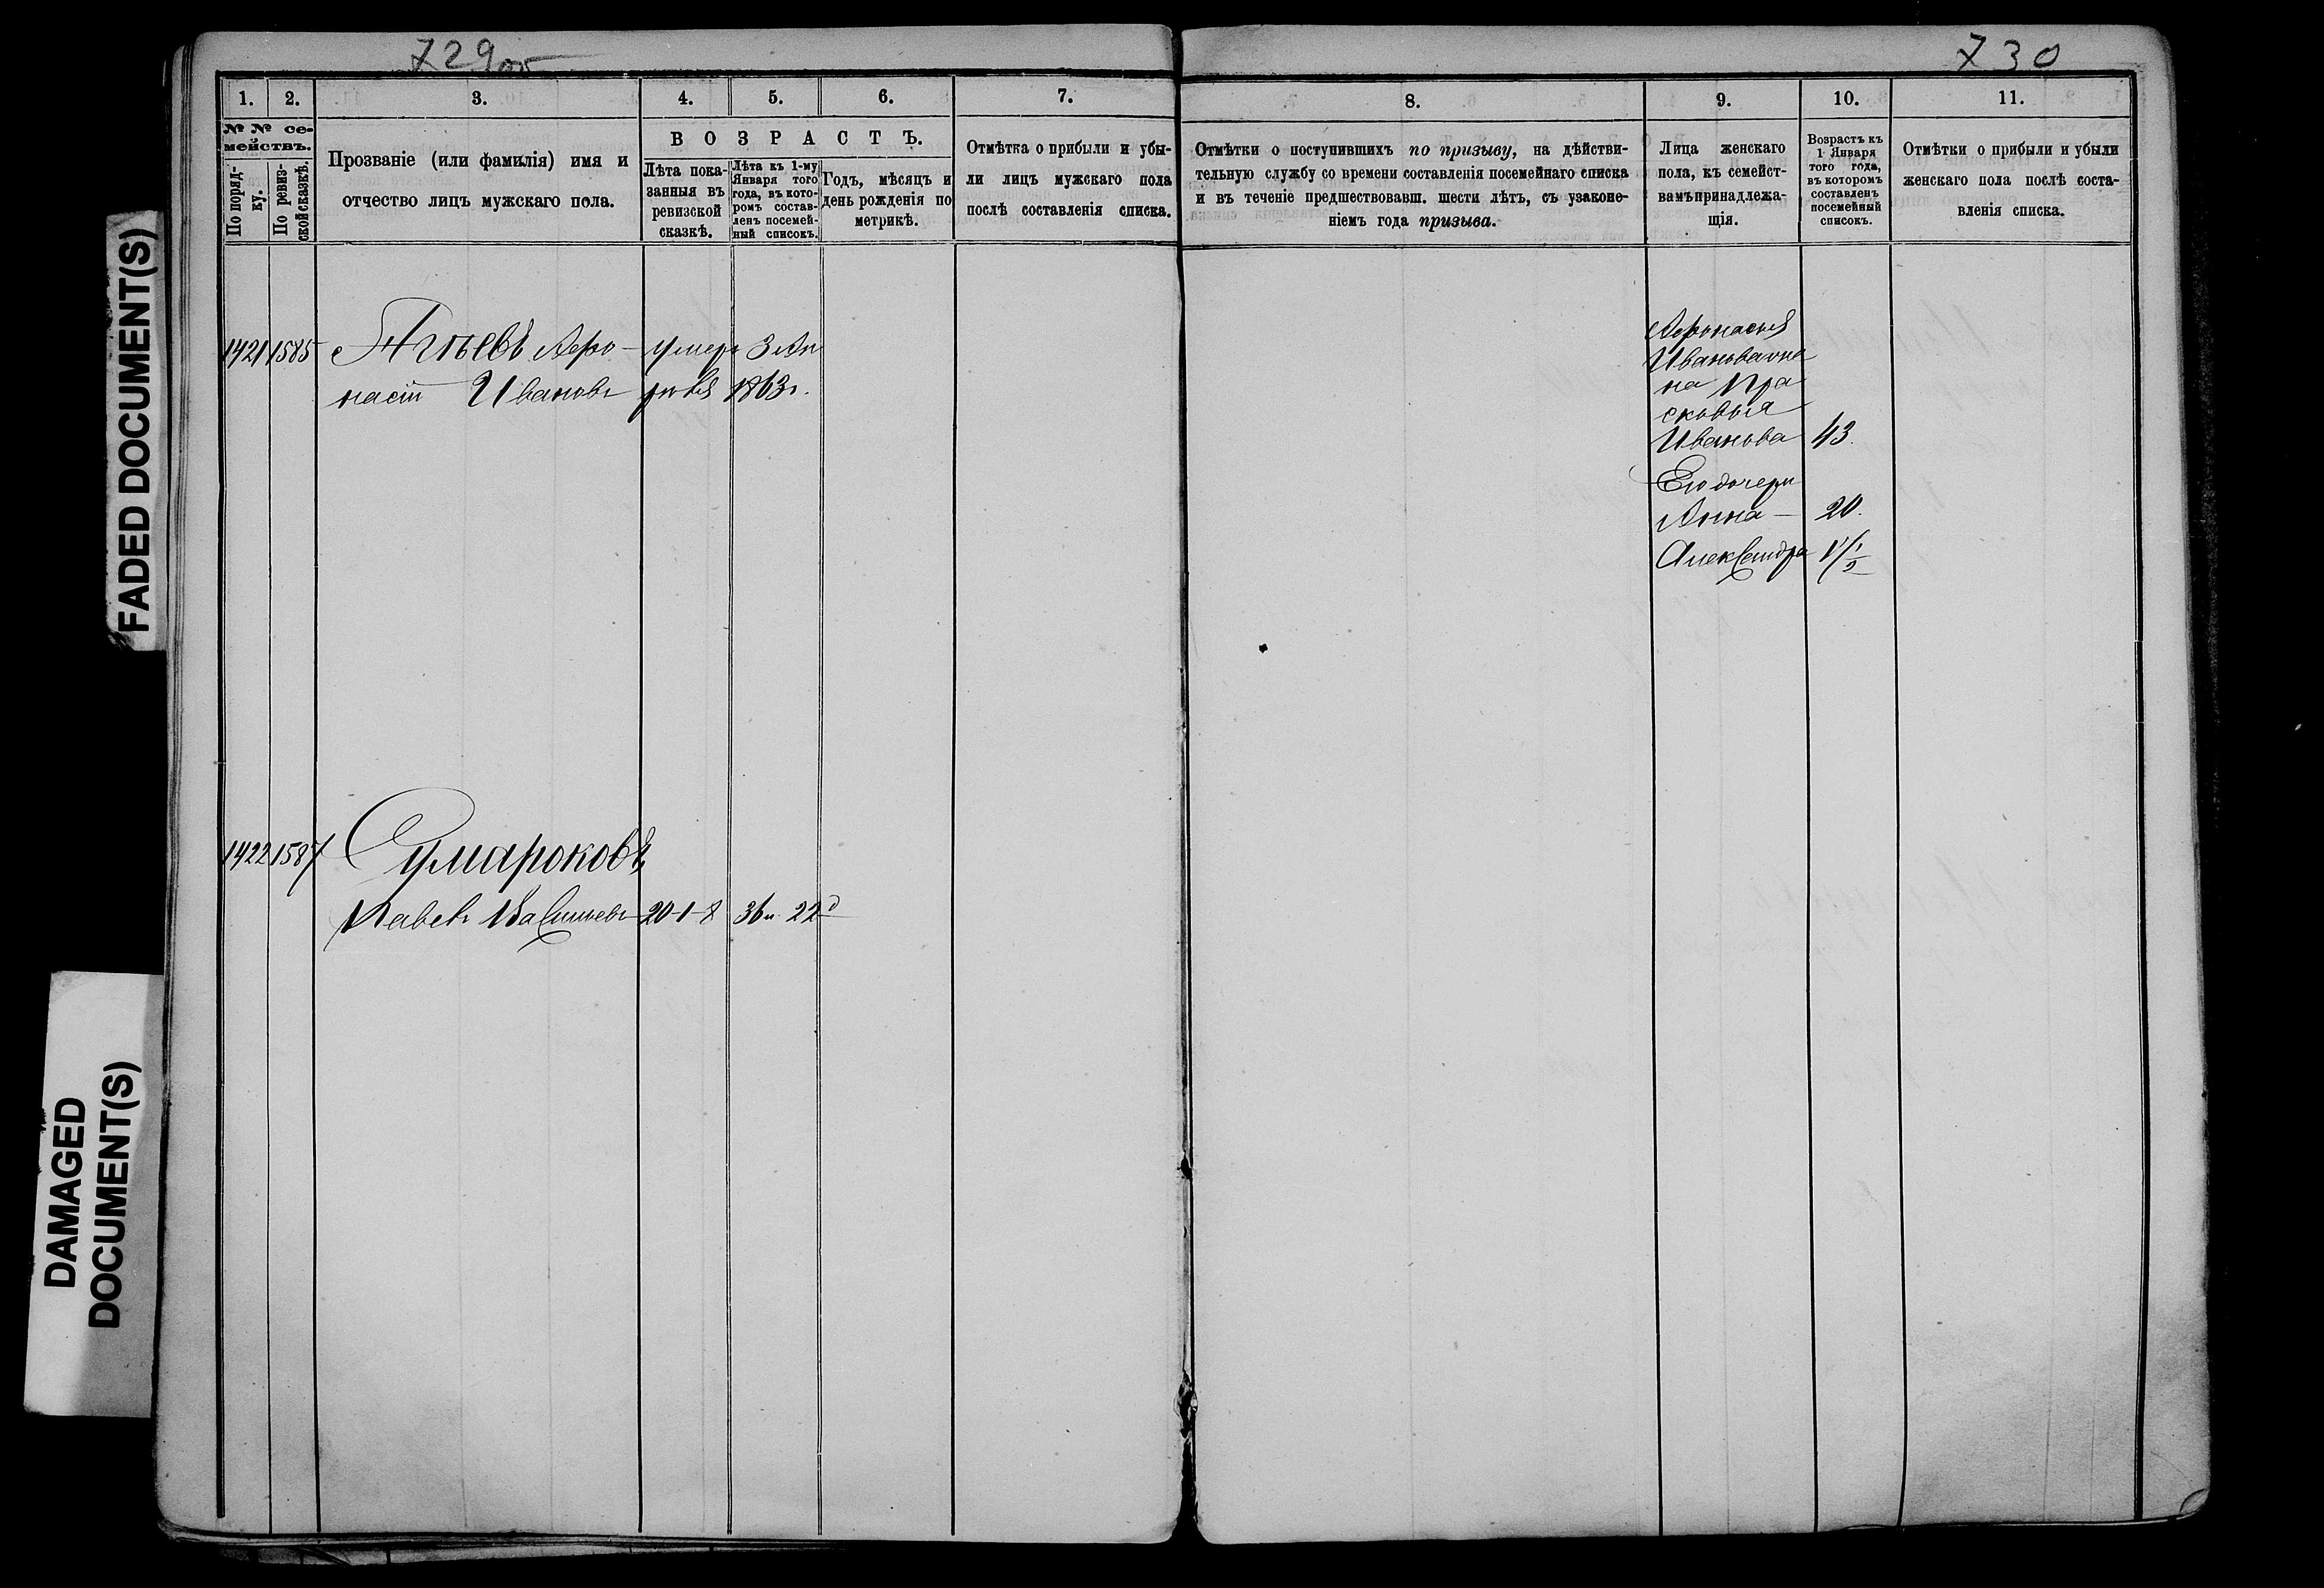 729 об
730
FADED DOCUMENT(S)
DAMAGED
DOCUMENT(S)
1.
2.
3.
4.
5.
6.
7.
№ № се-
мействъ.
По поряд-
ку.
По ревиз-
ской сказкѣ.
Прозваніе (или фамилія) имя и
отчество лицъ мужскаго пола.
ВОЗРАСТЪ.
Лѣта пока-
занныя въ
ревизской
сказкѣ.
Лѣта къ 1-му
Января того
года, въ кото-
ромъ состав-
ленъ посемей-
ный списокъ.
Годъ, мѣсяцъ и
день рожденія по
метрикѣ.
Отмѣтка о прибыли и убы-
ли лицъ мужскаго пола
послѣ составленія списка.
8.
9.
10.
11.
Отмѣтки о поступившихъ по призыву, на дѣйстви-
тельную службу со времени составленія посемейнаго списка
и въ теченіе предшествовавш. шести лѣтъ, съ узаконе-
ніемъ года призыва.
Лица женскаго
пола, къ семейст-
вамъ принадлежа-
щія.
Возрастъ къ
1 Января
того года,
въ которомъ
составленъ
посемейный
списокъ.
Отмѣтки о прибыли и убыли
женскаго пола послѣ соста-
вленія списка.
1421 1585 Афо- умеръ 3 Ап
насій Ивановъ рѣля 1863 г.
Афонасья
Иванова же
на Пра
сковья
Иванова 43.
Его дочери
Анна — 20.
Александра 1 1/2
1422 1587 Сумароковъ
Павелъ Васильевъ 20-1-8 36 и 22 д